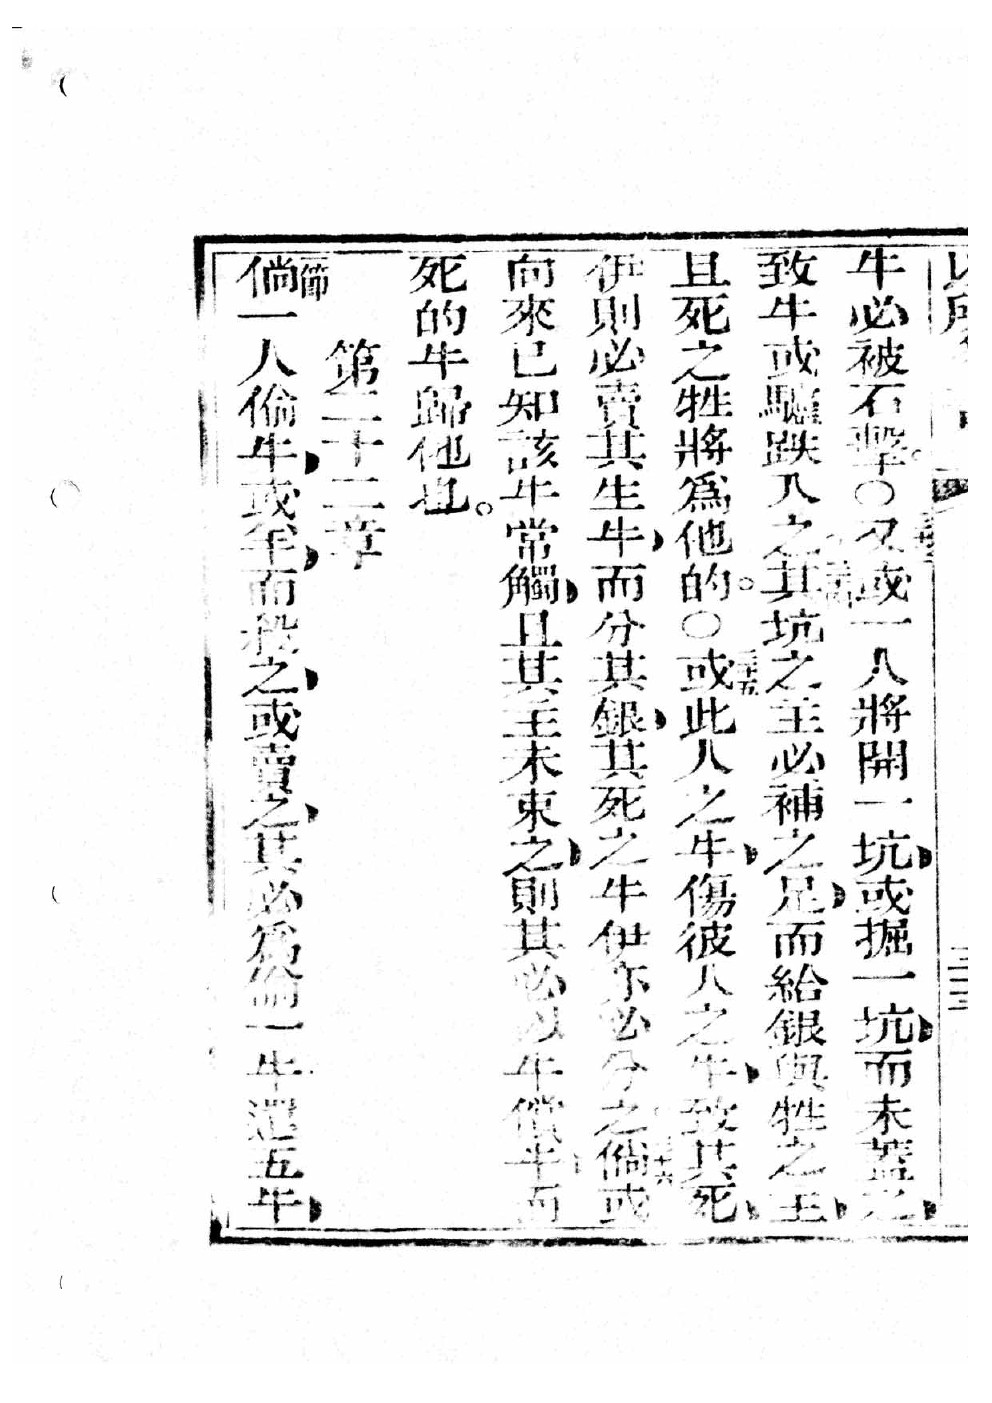 牛必被石擊。〇又或一人將開一坑或掘一坑而未蓋之
致牛或驢跌入之其坑之主必補之足而給銀與牲之主
且死之牲將爲他的。〇三五或此人之牛傷彼人之牛致其死
伊則必賣其生牛而分其銀其死之牛伊亦必分之三六倘或
向來已知該牛常觸且其主未束之則其必以牛償牛而
死的牛歸他也。
第二十二章
節倘一人偷牛或羊而殺之或賣之其必爲偷一牛還五牛